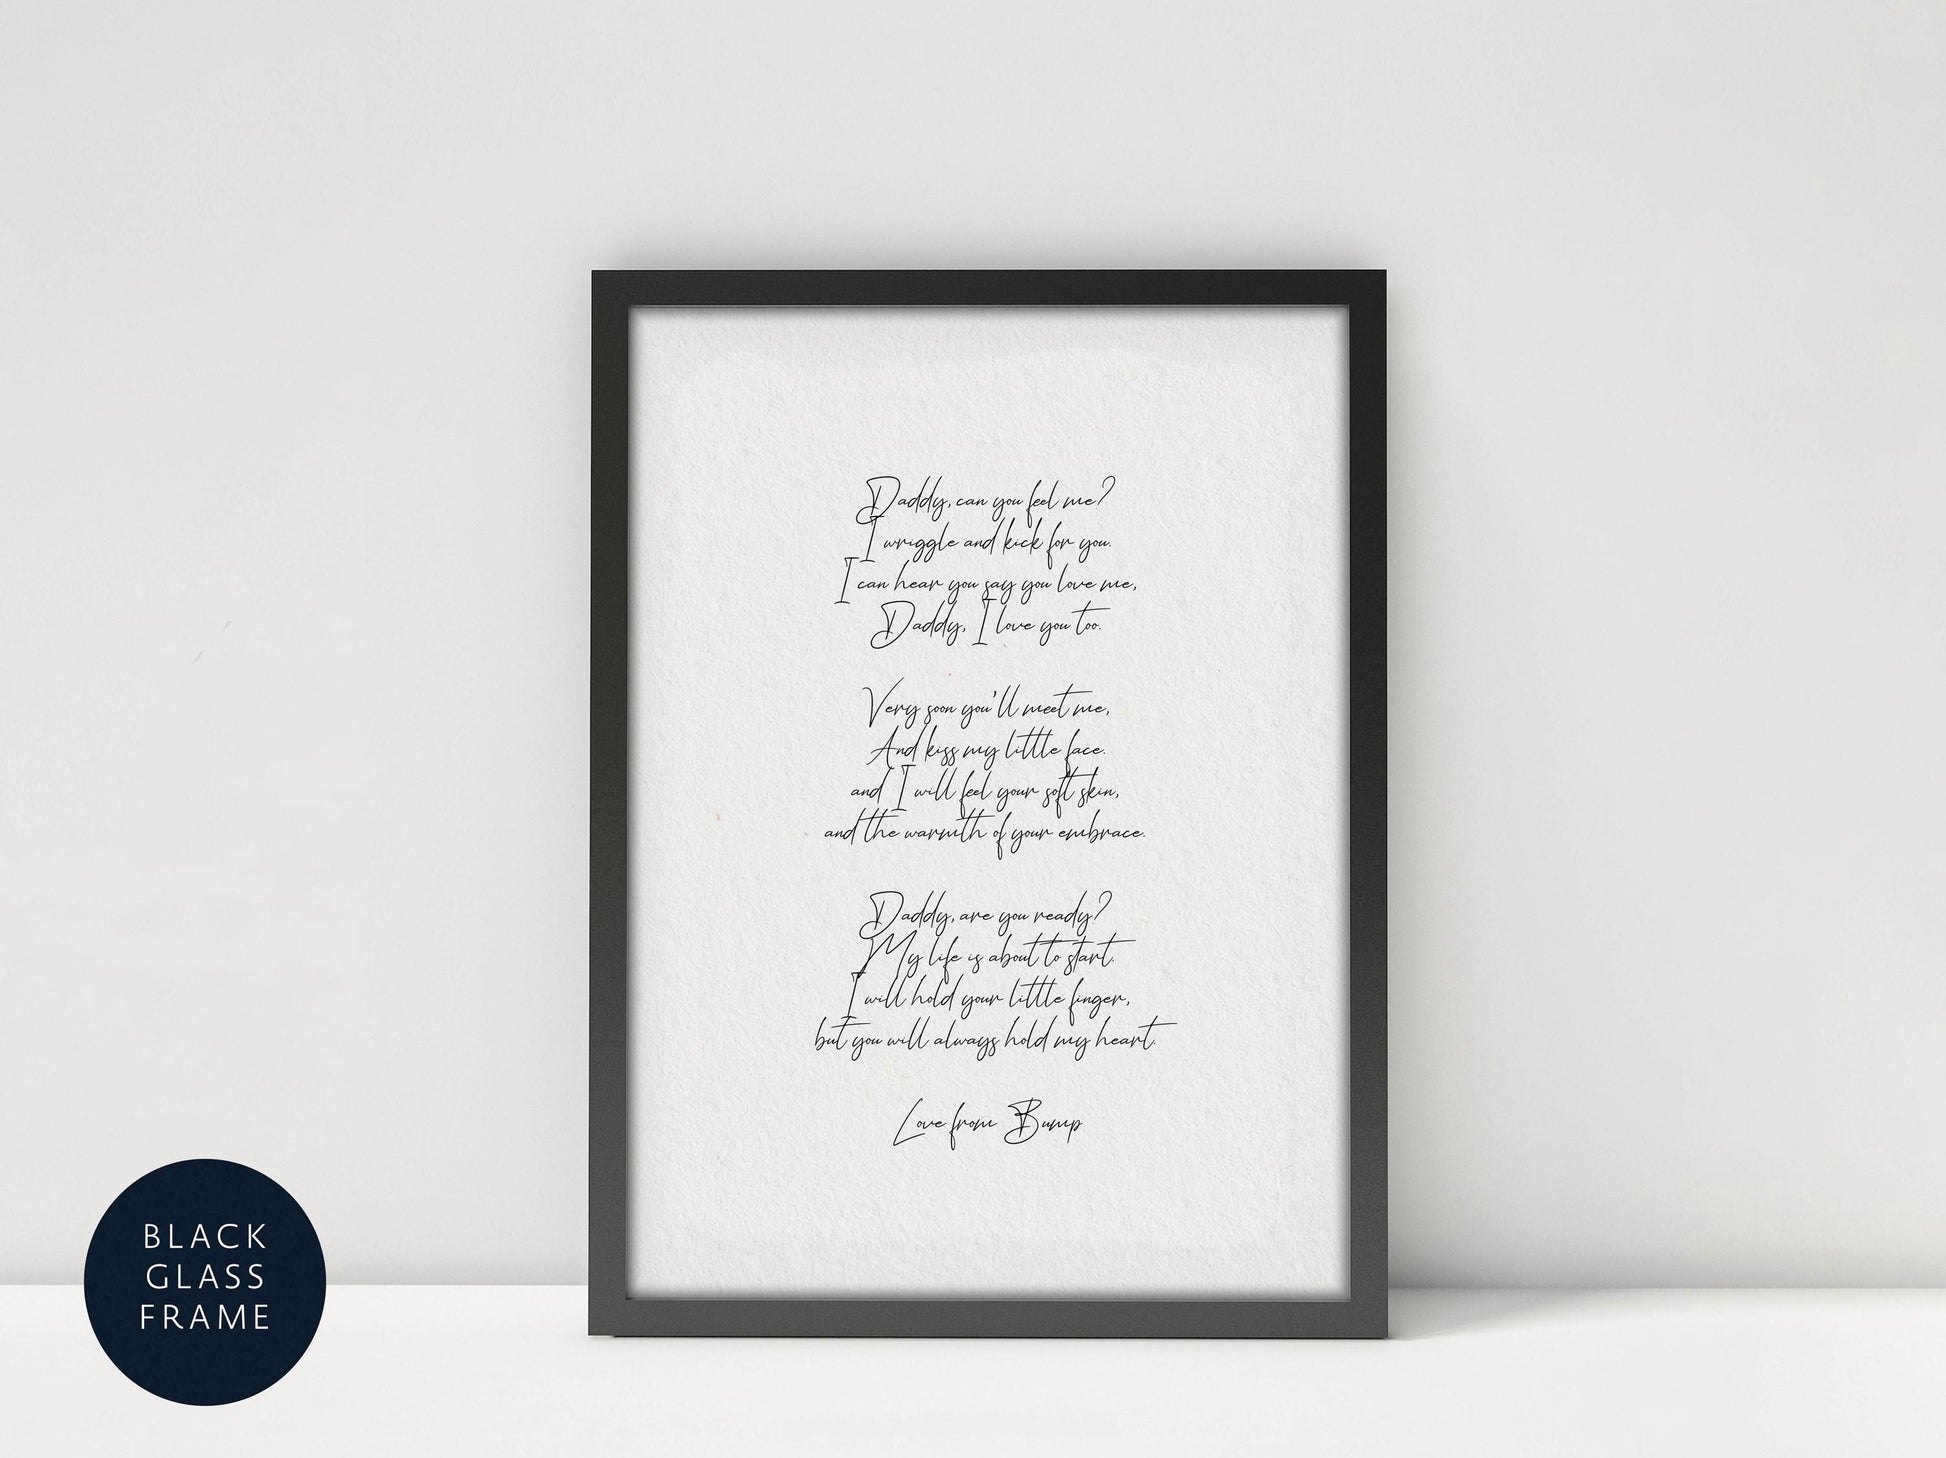 Daddy, can you feel me?
I wriggle and kick for you.
I can hear you say you love me,
Daddy, I love you too.
Very soon you'll meet me,
And kiss my little face.
and I will feel your soft skin,
and the warmth of your embrace.
Daddy, are you ready?
My life is about to start.
I will hold your little finger,
but you will always hold my heart.
Love from Bump
BLACK
GLASS
FRAME